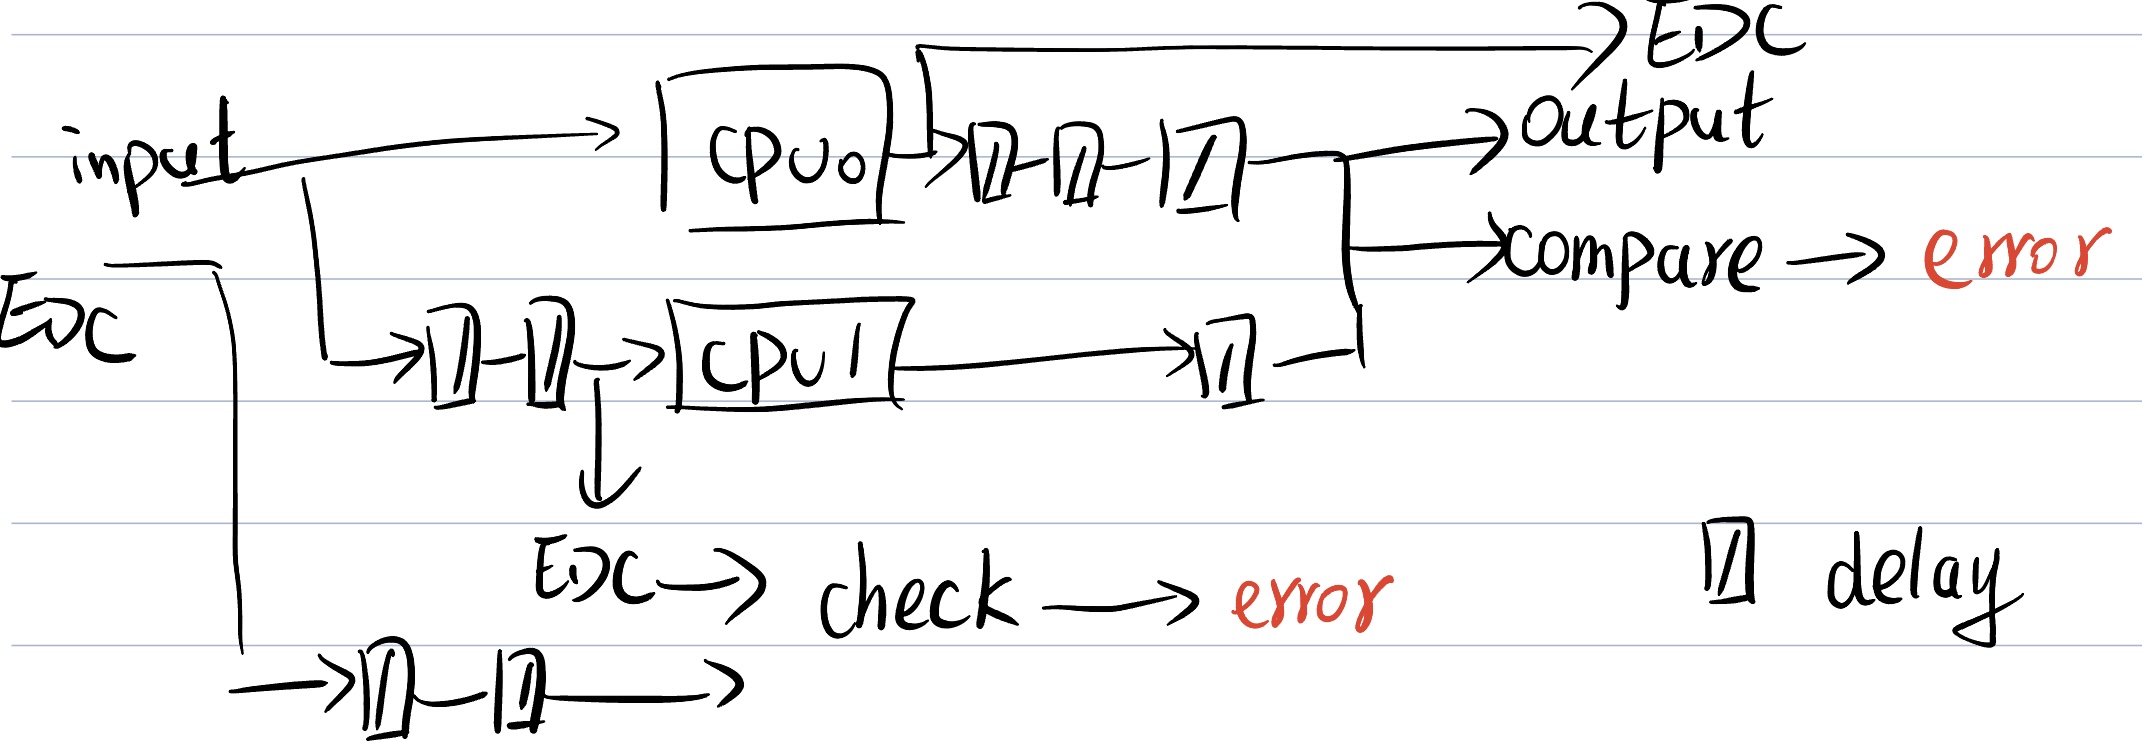 EDC
input
CPU0
output
compare → error
EDC
CPU1
EDC → check → error
delay